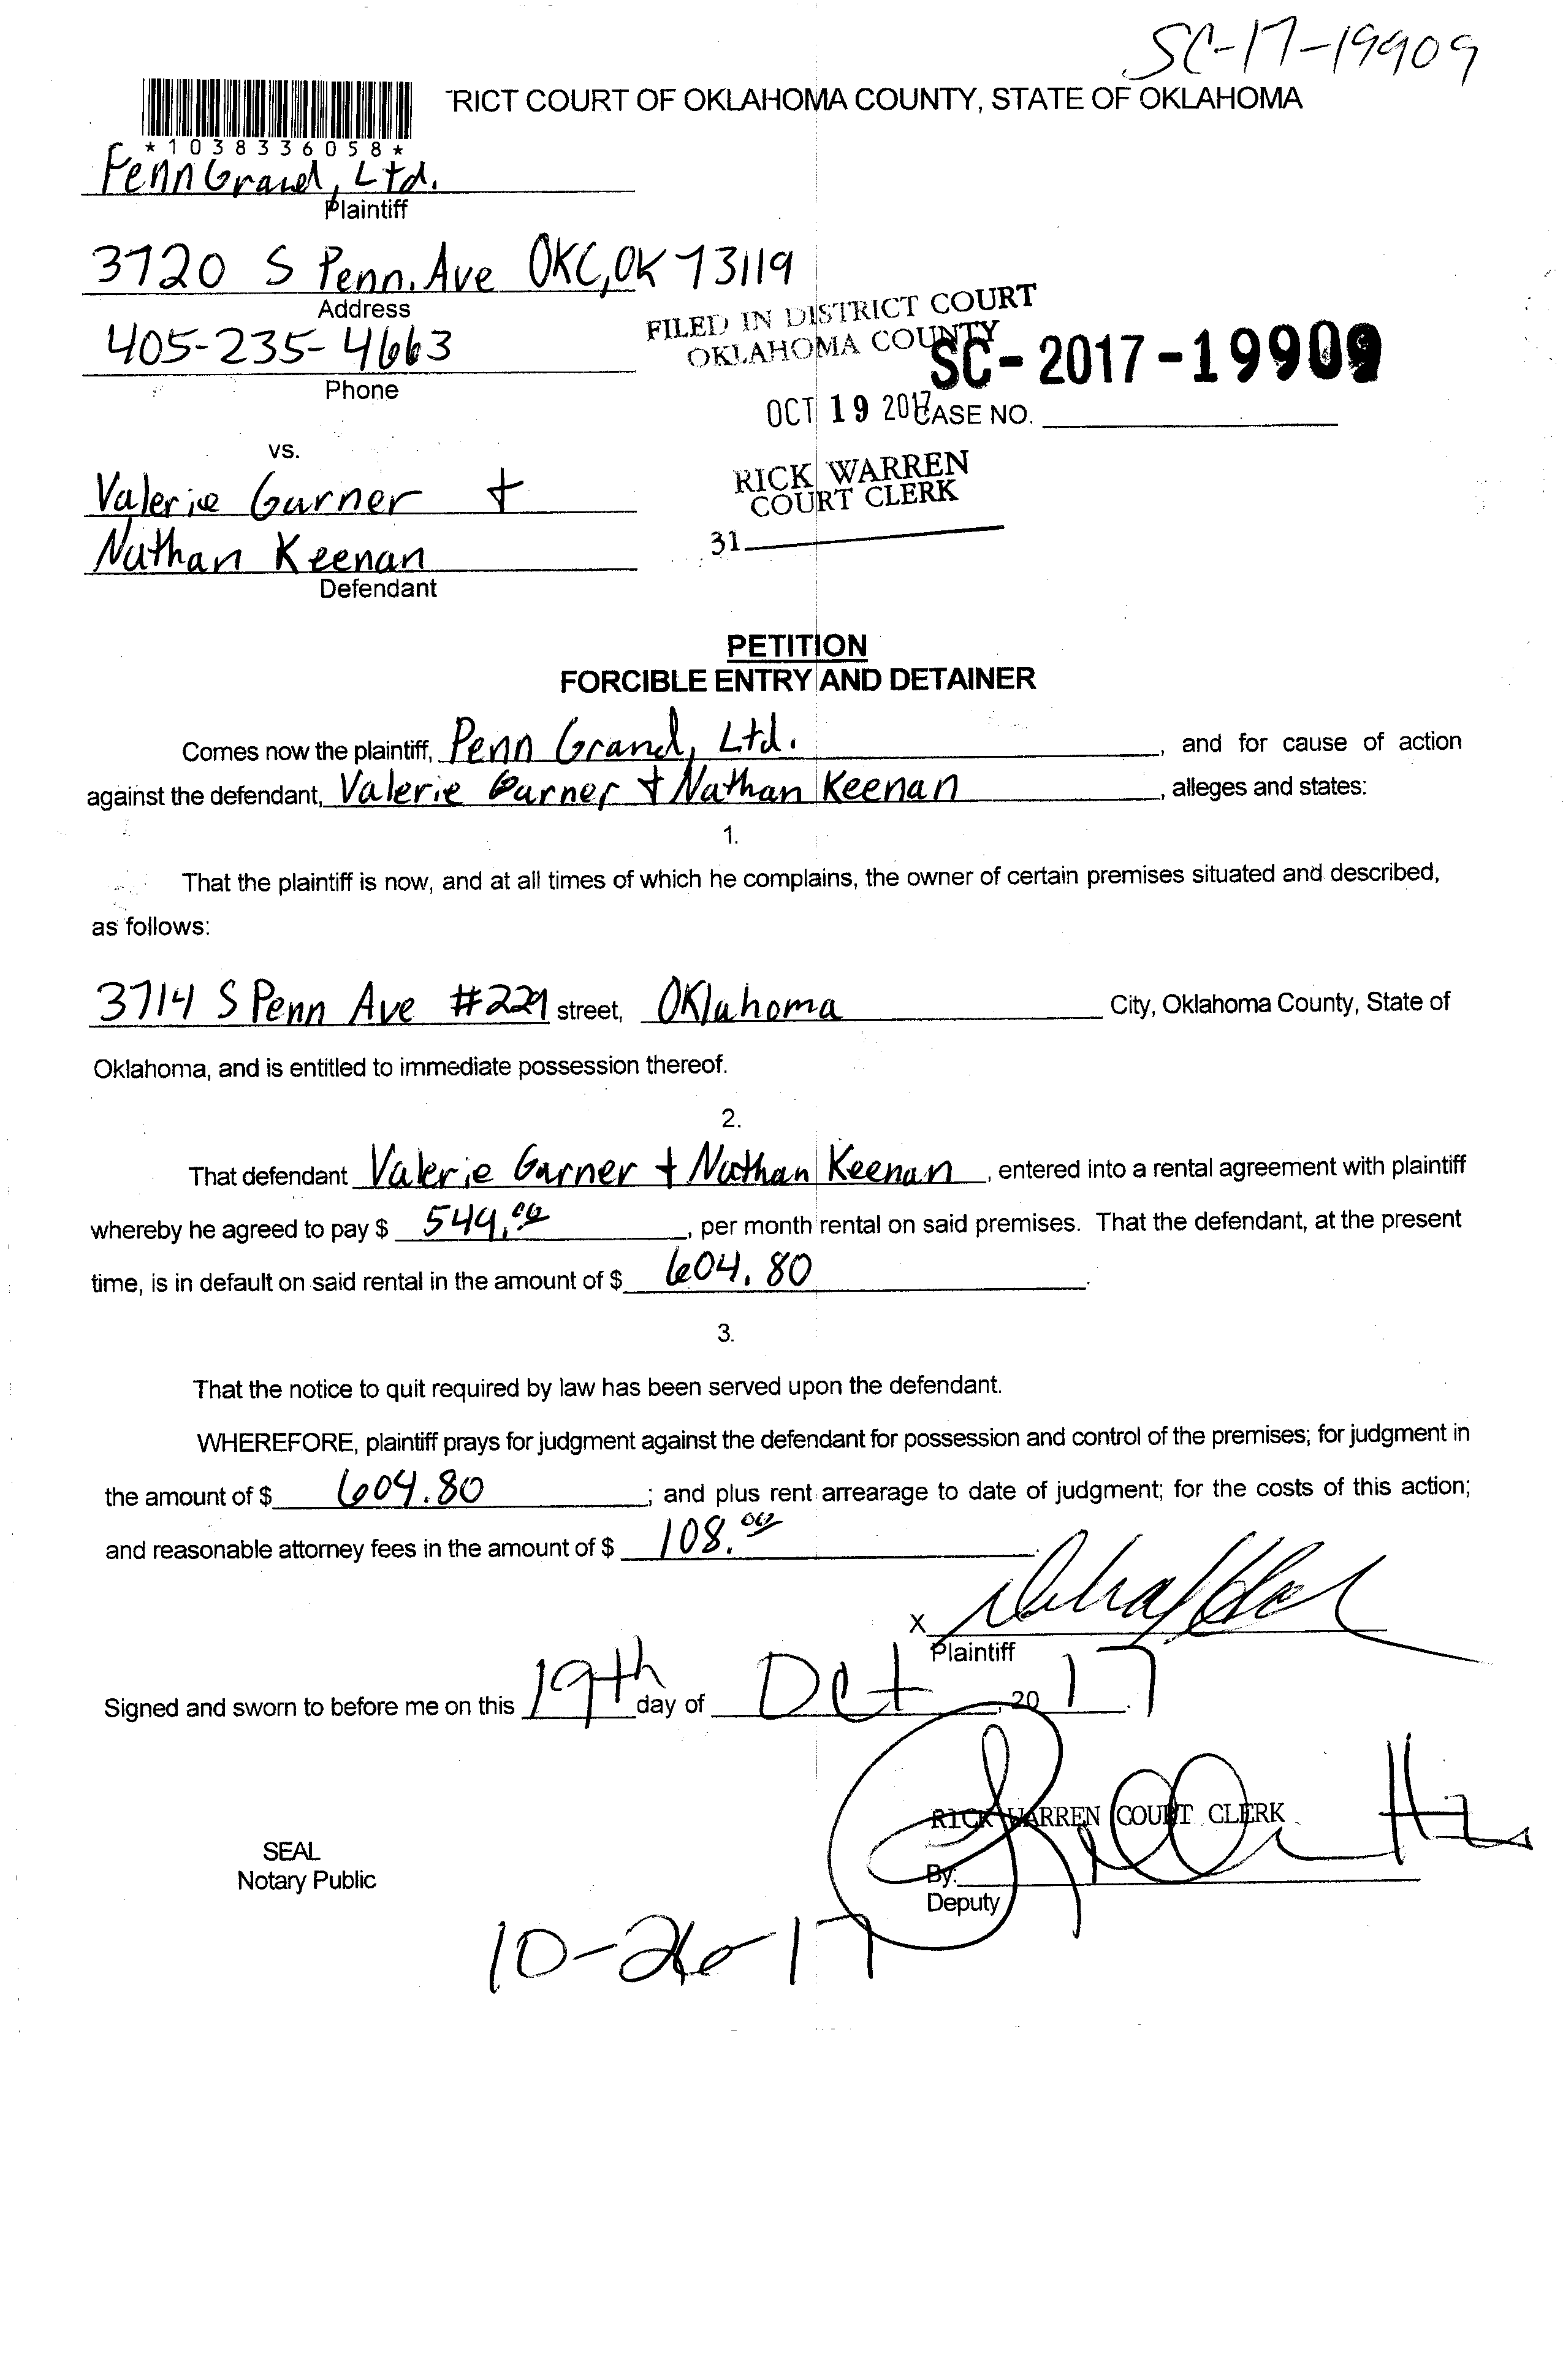 SC-17-19909
RICT COURT OF OKLAHOMA COUNTY, STATE OF OKLAHOMA
*1038336058*
Penn Grand, Ltd.
Plaintiff
3720 S Penn. Ave OKC, OK 73119
Address
405-235-4663
Phone
FILED IN DISTRICT COURT
OKLAHOMA COUNTY
SC-2017-19909
OCT 19 2017
CASE NO.
RICK WARREN
COURT CLERK
31
vs.
Valerie Garner +
Nathan Keenan
Defendant
PETITION
FORCIBLE ENTRY AND DETAINER
Comes now the plaintiff, Penn Grand, Ltd. , and for cause of action
against the defendant, Valerie Garner + Nathan Keenan , alleges and states:
1.
That the plaintiff is now, and at all times of which he complains, the owner of certain premises situated and described,
as follows:
3714 S Penn Ave #229 street, Oklahoma City, Oklahoma County, State of
Oklahoma, and is entitled to immediate possession thereof.
2.
That defendant Valerie Garner + Nathan Keenan , entered into a rental agreement with plaintiff
whereby he agreed to pay $ 549.00 , per month rental on said premises. That the defendant, at the present
time, is in default on said rental in the amount of $ 604.80 .
3.
That the notice to quit required by law has been served upon the defendant.
WHEREFORE, plaintiff prays for judgment against the defendant for possession and control of the premises; for judgment in
the amount of $ 604.80 ; and plus rent arrearage to date of judgment; for the costs of this action;
and reasonable attorney fees in the amount of $ 108.00 .
X
Plaintiff
Signed and sworn to before me on this 19th day of Oct , 20 17 .
RICK WARREN COURT CLERK
SEAL
Notary Public
By:
Deputy
10-26-17